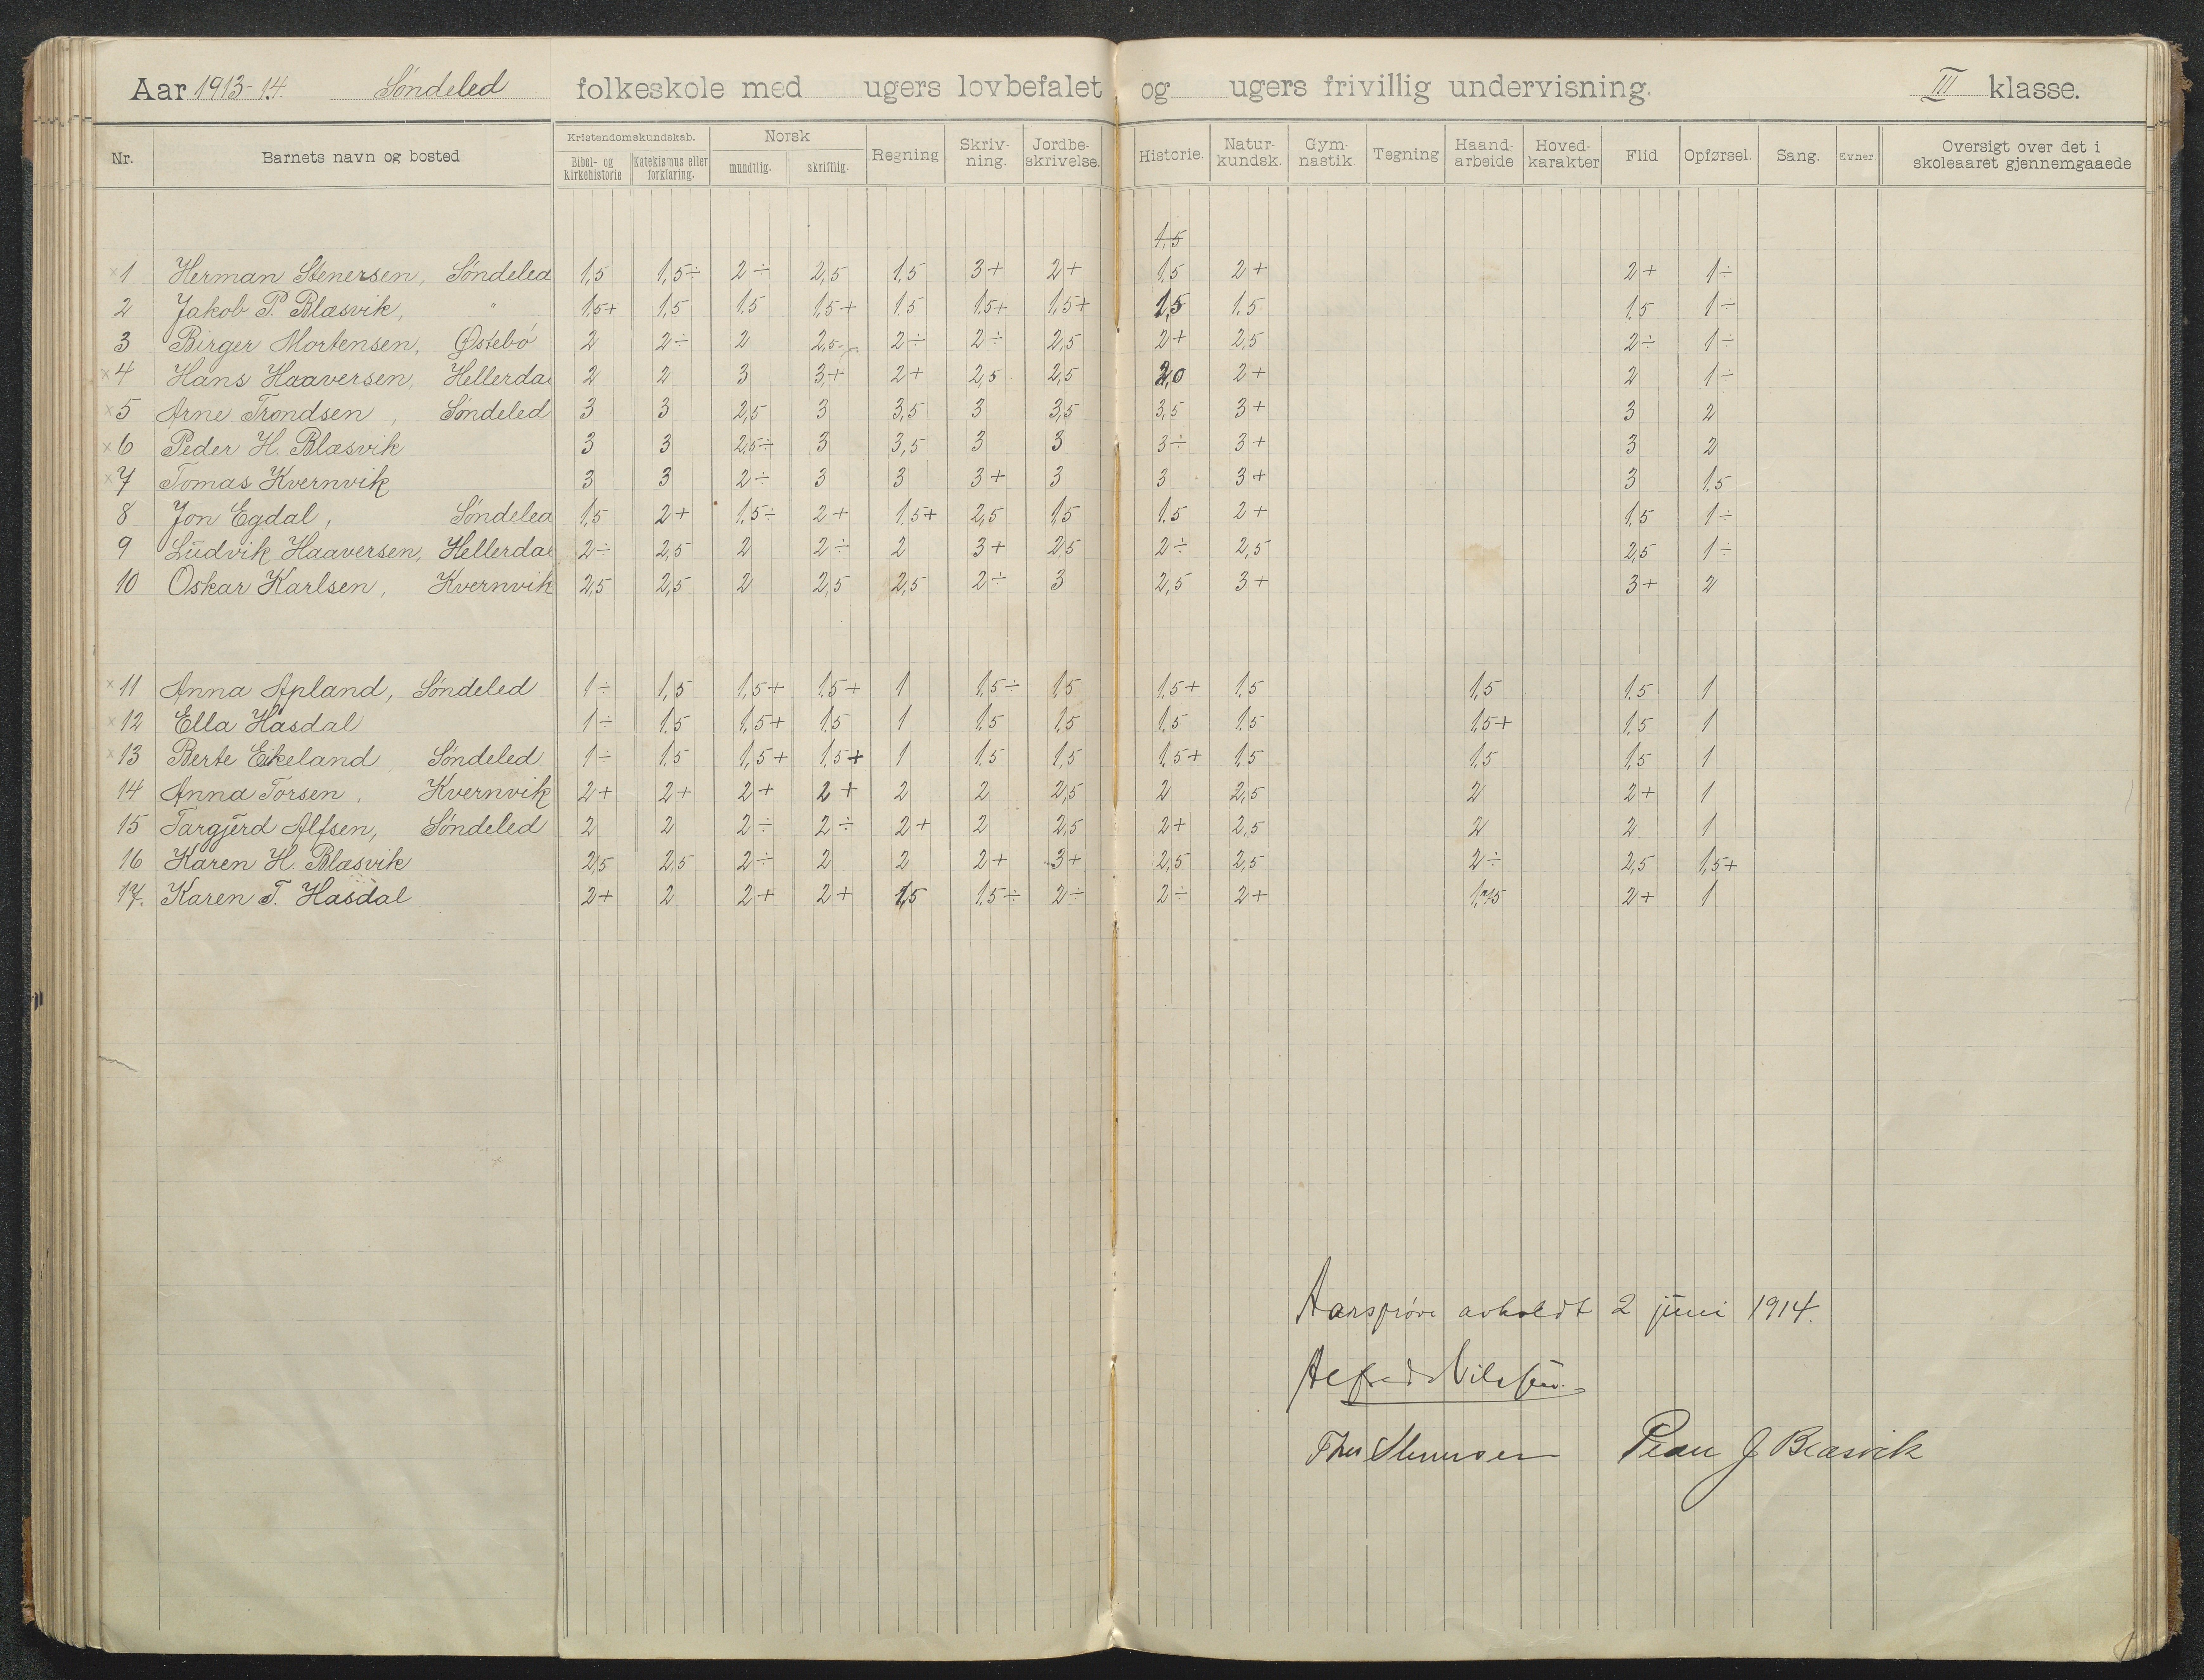 Aar 1913-14. Søndeled folkeskole med ugers lovbefalet og ugers frivillig undervisning. III klasse.
Nr. Barnets navn og bosted Kristendomskundskab. Bibel- og kirkehistorie Katekismus eller forklaring. Norsk mundtlig. skriftlig. Regning Skrivning. Jordbeskrivelse. Historie. Naturkundsk. Gymnastik Tegning Haandarbeide Hovedkarakter Flid Opførsel. Sang. Evner Oversigt over det i skoleaaret gjennemgaaede
1,5
x 1 Herman Stenersen, Søndeled 1,5 1,5÷ 2÷ 2,5 1,5 3+ 2+ 1,5 2+ 2+ 1÷
2 Jakob P. Blæsvik, " 1,5+ 1,5 1.5 1,5+ 1.5 1.5+ 1,5+ 1,5 1.5 1.5 1÷
3 Birger Mortensen, Østebö 2 2÷ 2 2,5 2÷ 2÷ 2,5 2+ 2,5 2÷ 1÷
x 4 Hans Haaversen, Hellerdal 2 2 3 3+ 2+ 2,5 2,5 2,0 2+ 2 1÷
x 5 Arne Trondsen, Søndeled 3 3 2,5 3 3,5 3 3,5 3,5 3+ 3 2
x 6 Peder H. Blæsvik 3 3 2,5÷ 3 3,5 3 3 3÷ 3+ 3 2
x 7 Tomas Kvernvik 3 3 2÷ 3 3 3+ 3 3 3+ 3 1,5
8 Jon Egdal, Søndeled 1,5 2+ 1.5÷ 2+ 1.5+ 2,5 1,5 1.5 2+ 1,5 1÷
9 Ludvik Haaversen, Hellerdal 2÷ 2,5 2 2÷ 2 3+ 2,5 2÷ 2,5 2,5 1÷
10 Oskar Karlsen, Kvernvik 2,5 2,5 2 2,5 2,5 2÷ 3 2,5 3+ 3+ 2
x 11 Anna Apland, Søndeled 1÷ 1,5 1,5+ 1.5+ 1 1.5÷ 1,5 1,5+ 1.5 1,5 1.5 1
x 12 Ella Hasdal 1÷ 1.5 1,5+ 1.5 1 1.5 1,5 1.5 1.5 1,5+ 1,5 1
x 13 Berte Eikeland Søndeled 1÷ 1.5 1,5+ 1.5+ 1 1.5 1,5 1.5+ 1.5 1.5 1,5 1
14 Anna Torsen, Kvernvik 2+ 2+ 2+ 2+ 2 2 2,5 2 2,5 2 2+ 1
15 Targjerd Alfsen, Søndeled 2 2 2÷ 2÷ 2+ 2 2,5 2+ 2,5 2 2 1
16 Karen H. Blæsvik 2,5 2,5 2÷ 2 2 2+ 3+ 2,5 2,5 2÷ 2,5 1,5+
17. Karen T. Hasdal 2+ 2 2+ 2+ 1,5 1.5÷ 2÷ 2÷ 2+ 2+ 1
Aarsprøve avholdt 2 juni 1914.
Alfred Nilssen.
Stenersen J Blæsvik